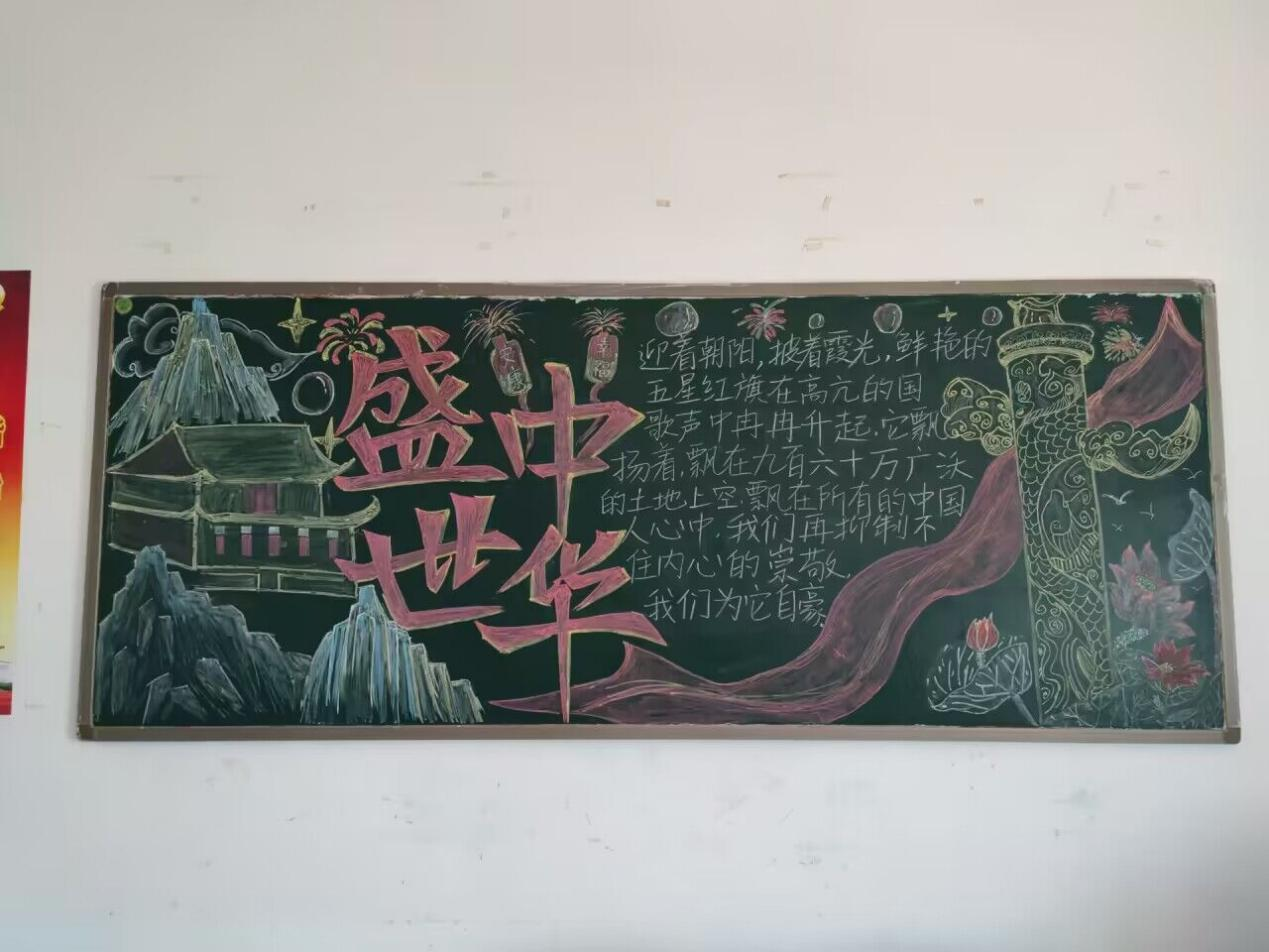 盛世
中华
安康
幸福
迎着朝阳,披着霞光,鲜艳的
五星红旗在高亢的国
歌声中冉冉升起.它飘
扬着,飘在九百六十万广沃
的土地上空.飘在所有的中国
人心中.我们再抑制不
住内心的崇敬.
我们为它自豪.